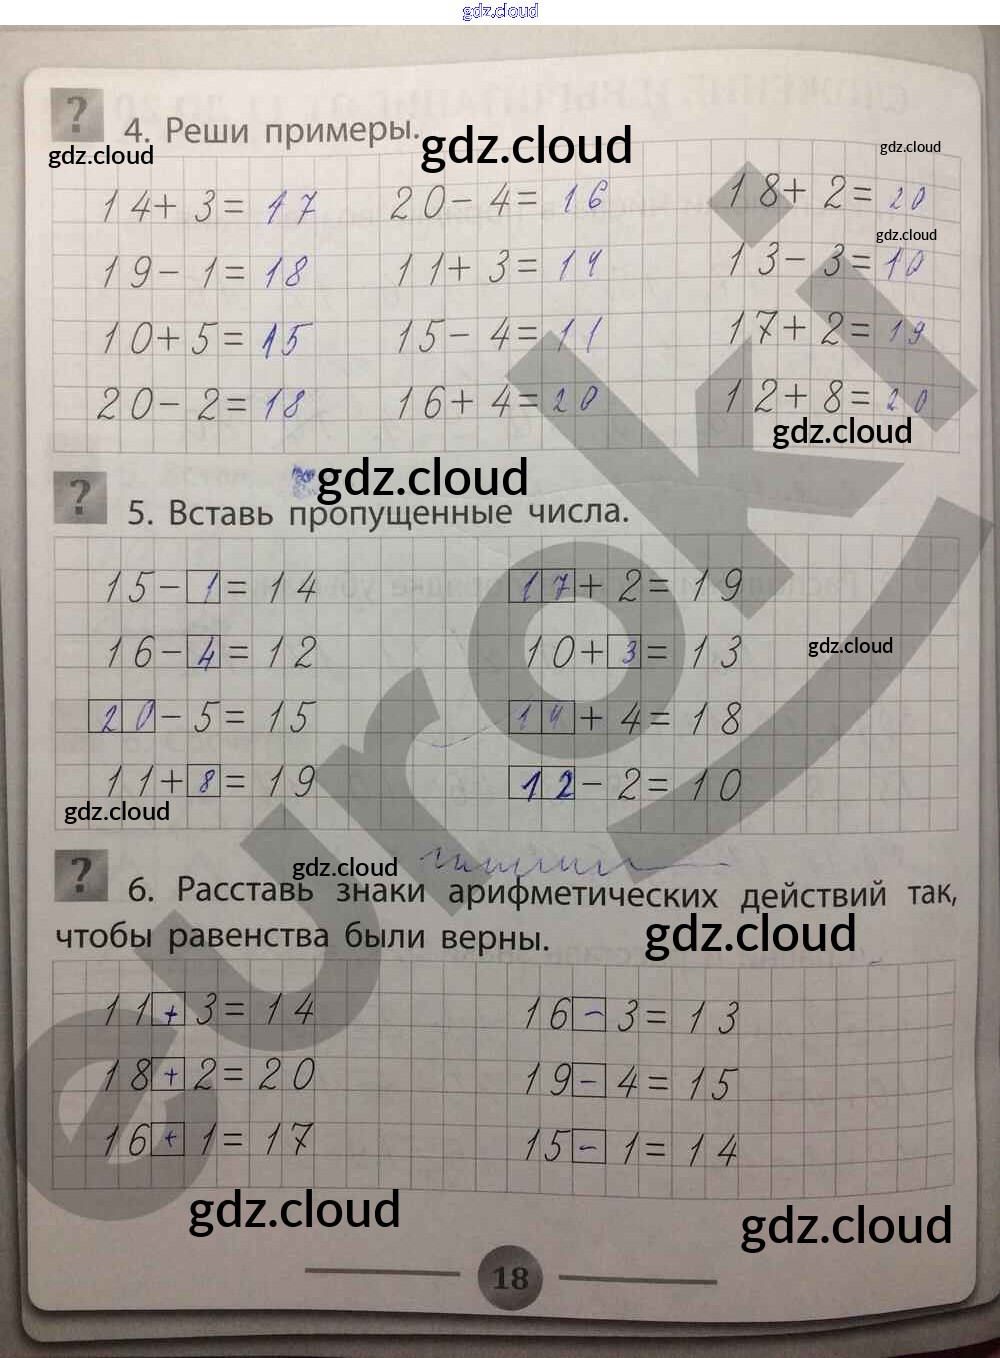 gdz.cloud
? 4. Реши примеры.
gdz.cloud gdz.cloud gdz.cloud
14+ 3= 17 20- 4= 16 18+ 2= 20
gdz.cloud
19- 1= 18 11+ 3= 14 13- 3= 10
10+ 5= 15 15- 4= 11 17+ 2= 19
20- 2= 18 16+ 4= 20 12+ 8= 20
gdz.cloud
gdz.cloud
? 5. Вставь пропущенные числа.
15- 1= 14 17+ 2= 19
16- 4= 12 10+ 3= 13
gdz.cloud
20- 5= 15 14+ 4= 18
11+ 8= 19 12- 2= 10
gdz.cloud
gdz.cloud
? 6. Расставь знаки арифметических действий так,
чтобы равенства были верны.
gdz.cloud
11+ 3= 14 16- 3= 13
18+ 2= 20 19- 4= 15
16+ 1= 17 15- 1= 14
gdz.cloud gdz.cloud
18
euroki